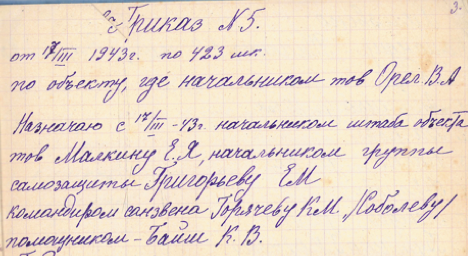 3.
Приказ N 5.
от 17/III 1943г. по 423 мк.
по объекту, где начальником тов Орел В.А
Назначаю с 17/III-43г. начальником штаба объекта
тов Малкину Е.Я, начальником группы
самозащиты Григорьеву ЕМ
командиром санзвена Горячеву КМ /Соболеву/
помощником - Байш К.В.